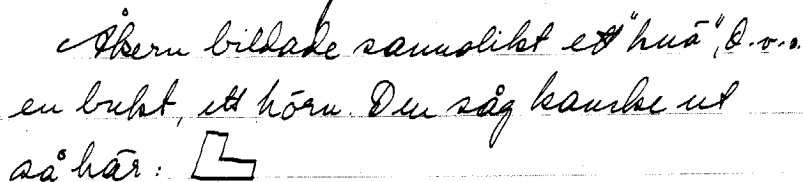 Åkern bildade sannolikt ett "huä", d.v.s.
en bukt, ett hörn. Den såg kanske ut
så här: